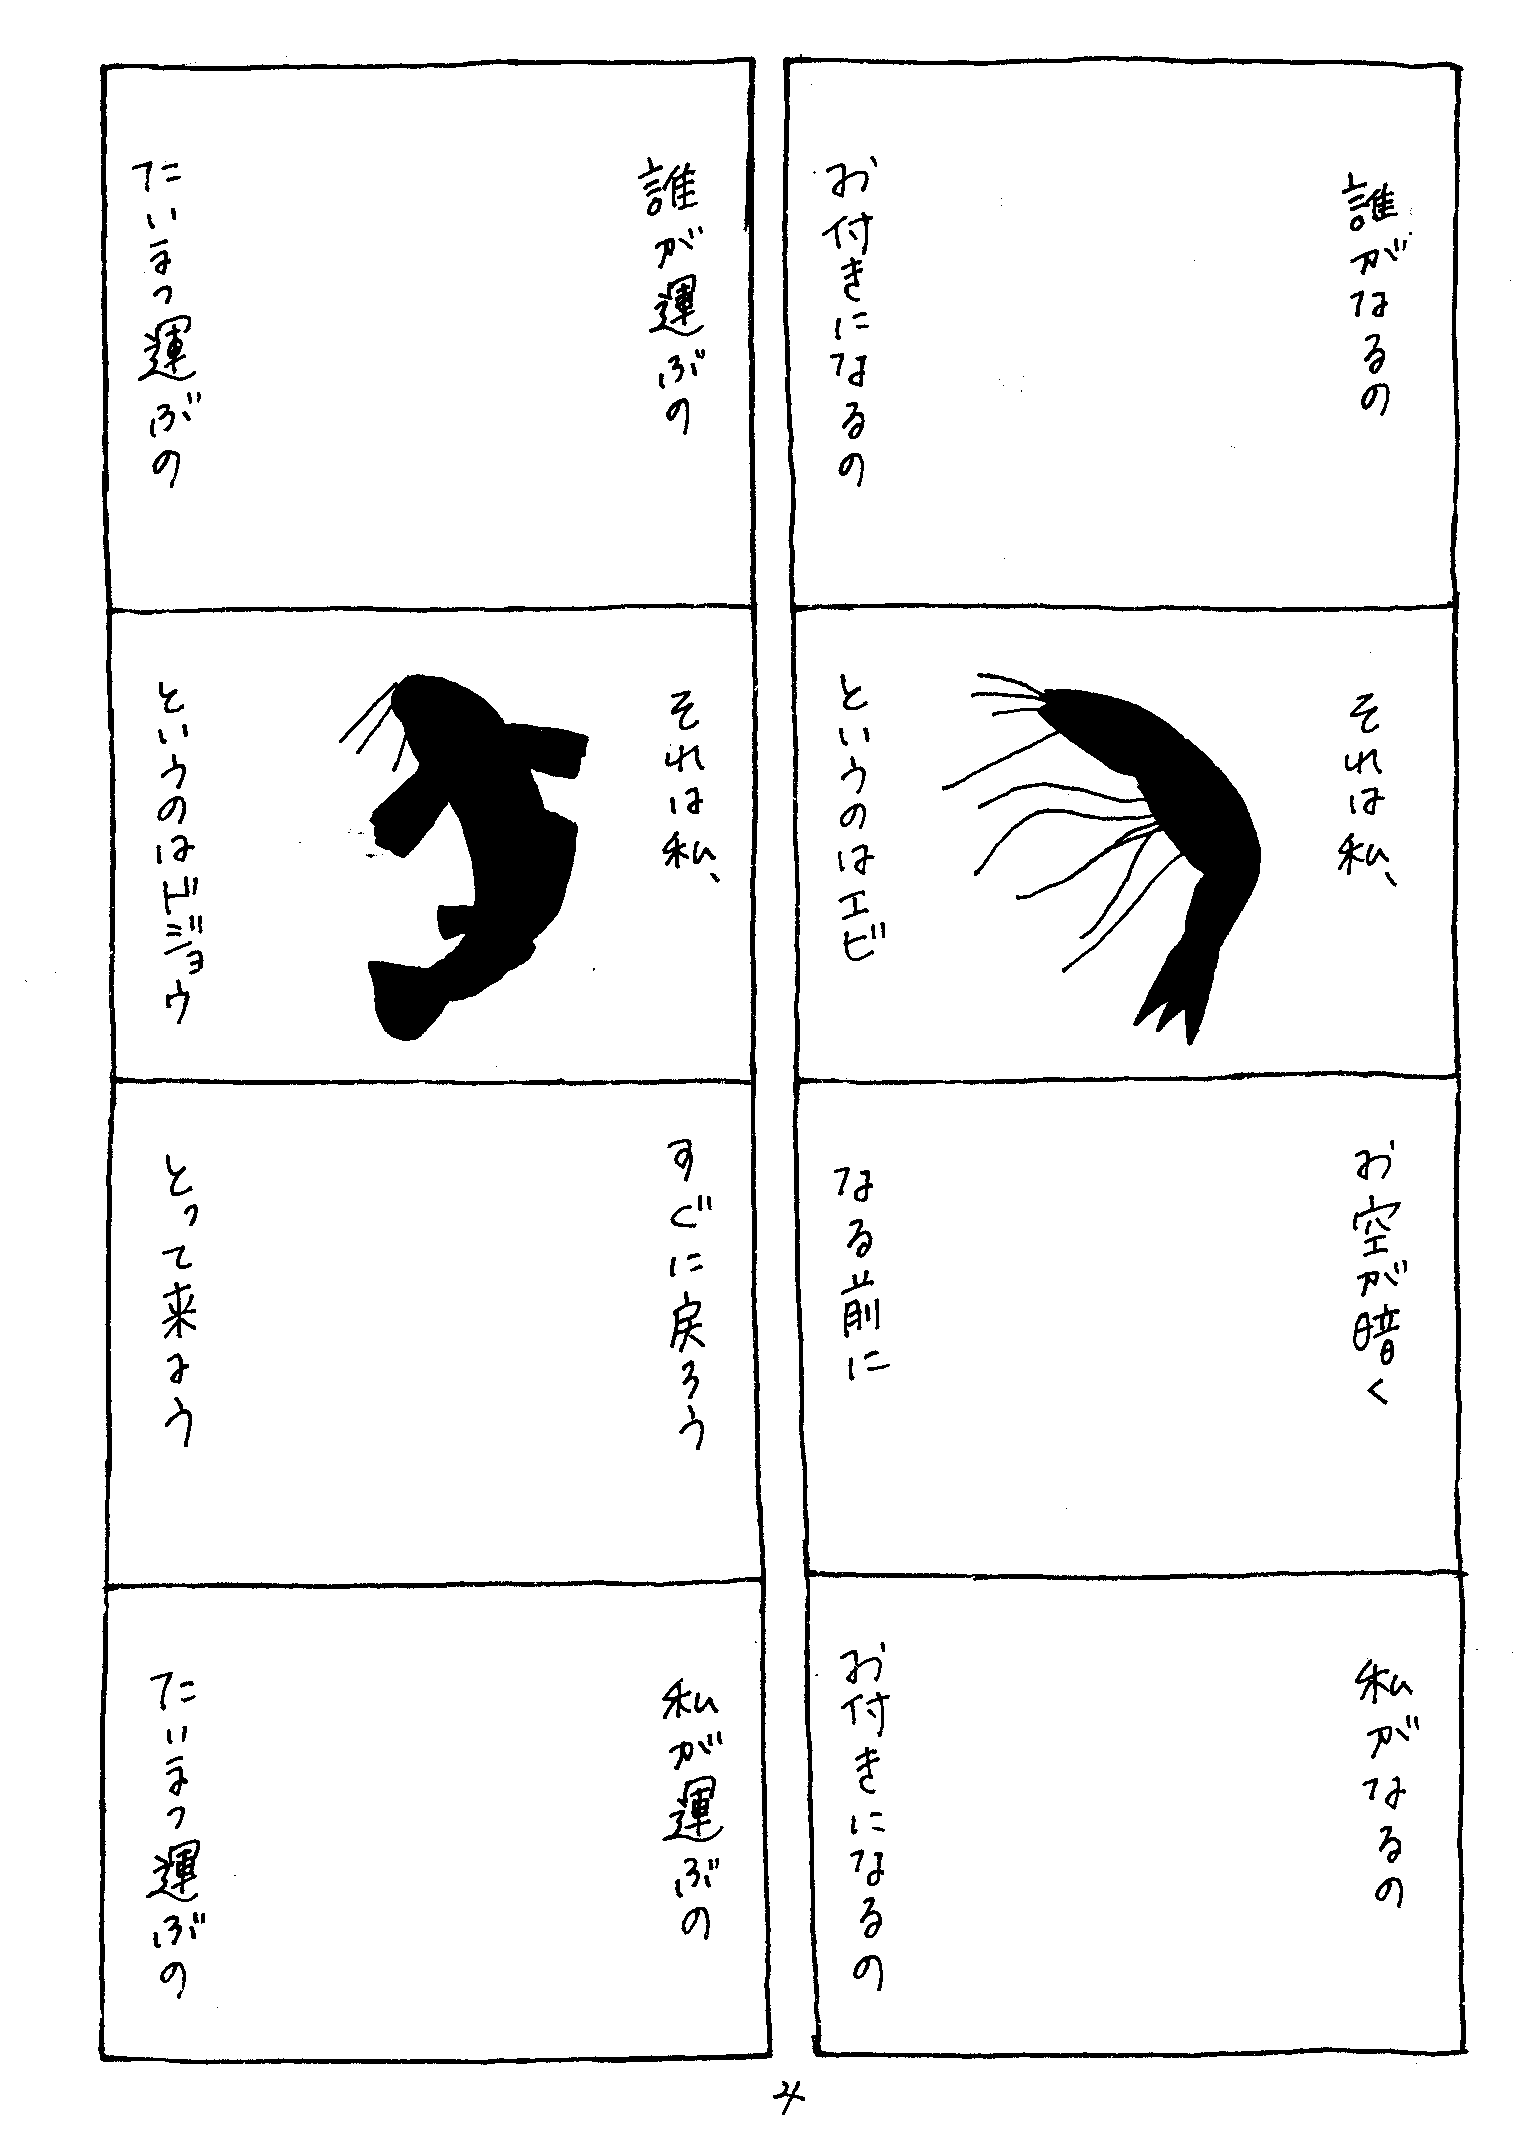 誰がなるの
お付きになるの
それは私、
というのはエビ
お空が暗く
なる前に
私がなるの
お付きになるの
誰が運ぶの
たいまつ運ぶの
それは私、
というのはドジョウ
すぐに戻ろう
とって来よう
私が運ぶの
たいまつ運ぶの
4